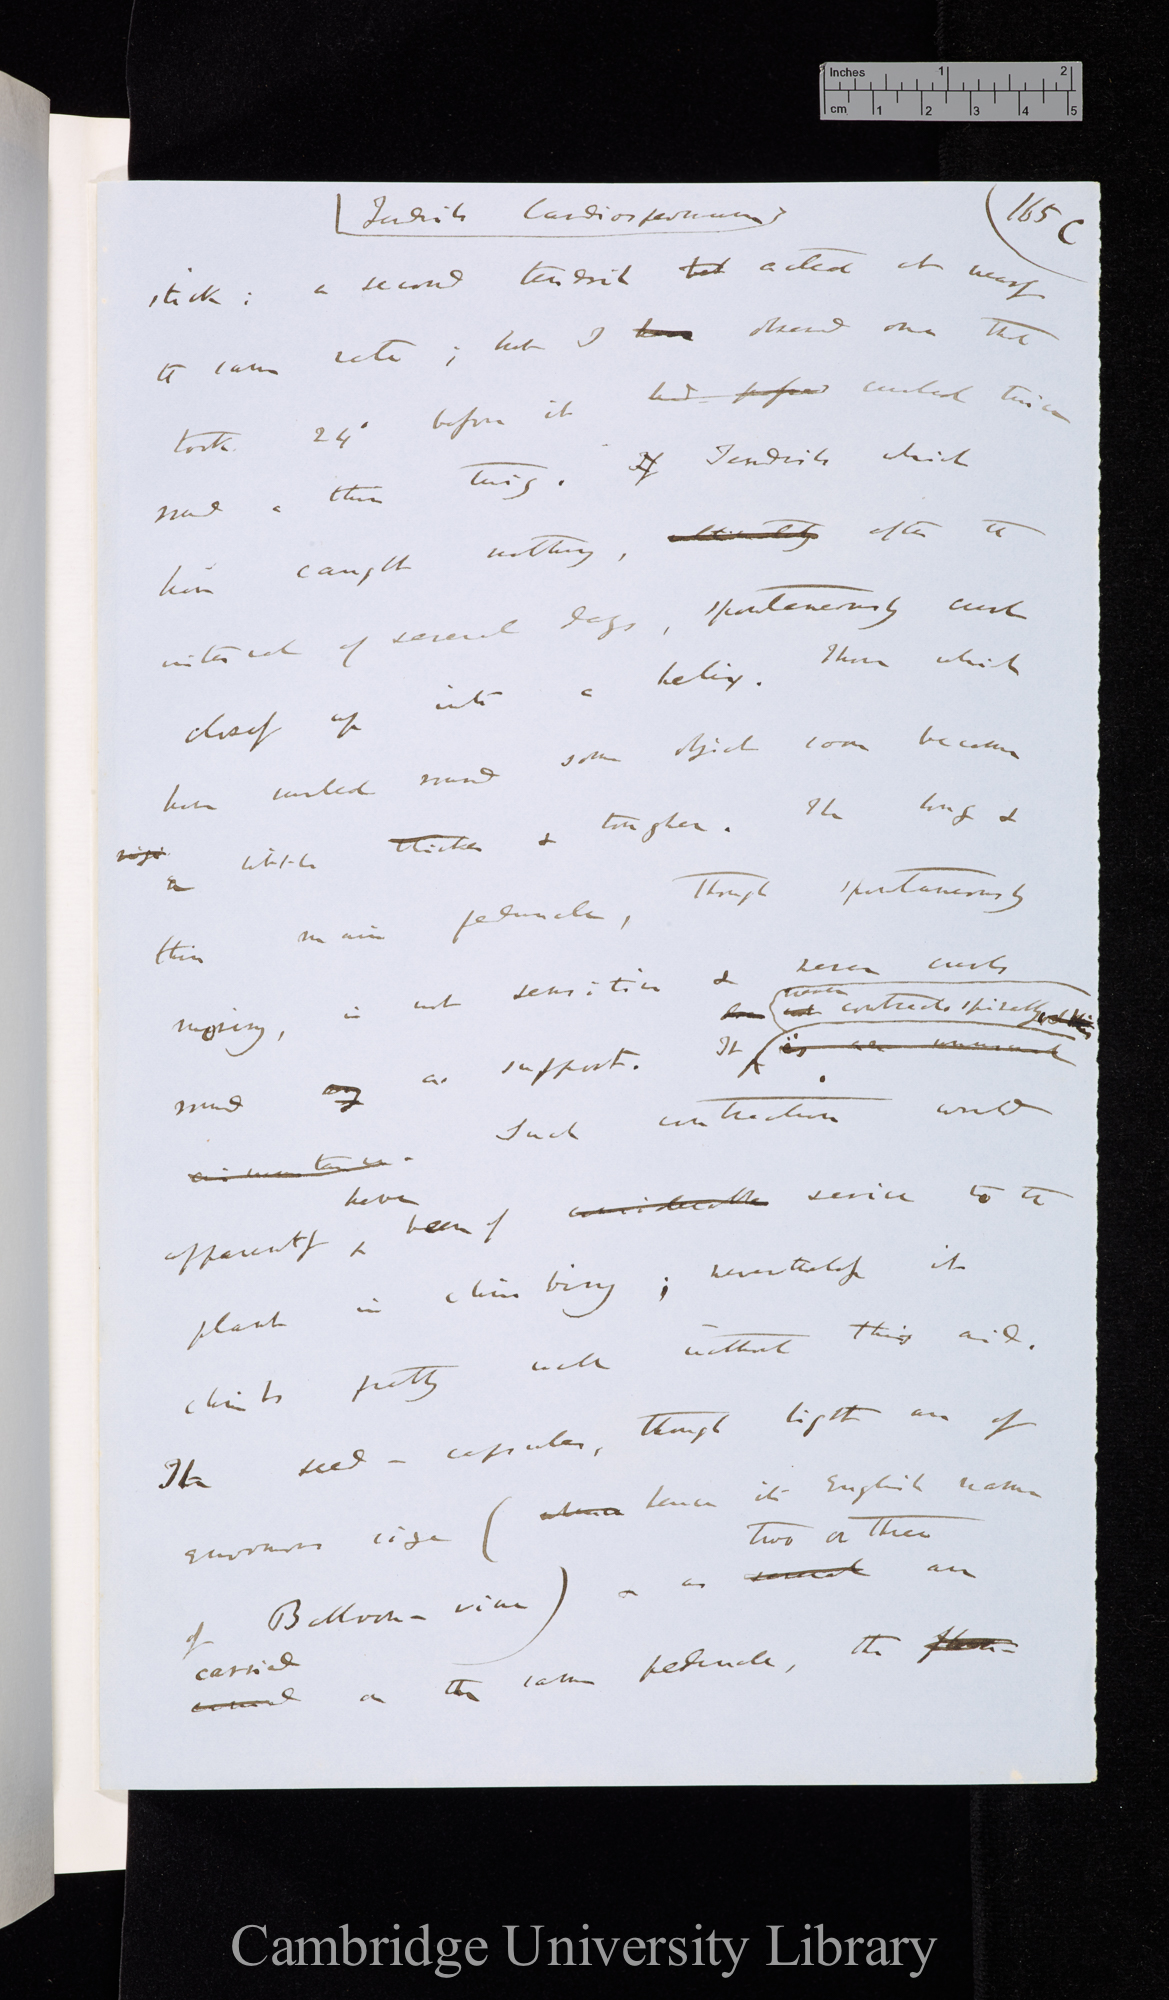 Inches 1 2
cm 1 2 3 4 5
Tendrils Cardiospermum
165 C
stick: a second tendril acted at nearly
the same rate; but I have observed one that
took 24° before it had curled twice
round a thin twig. If Tendrils which
have caught nothing, after the
interval of several days, spontaneously curl
closely up into a helix. Those which
have curled round some object soon become
a little thicker & tougher. The long &
thin main peduncle, though spontaneously
moving, is not sensitive & never curls
never contracts spirally
round any a support. It is an unusual
circumstance. Such contraction would
have
apparently been of considerable service to the
plant in climbing; nevertheless it
climbs pretty well without this aid.
The seed-capsules, though light are of
enormous size (whence hence its English name
two or three
of Balloon-vine) & as several are
carried
on the same peduncle, the
Cambridge University Library